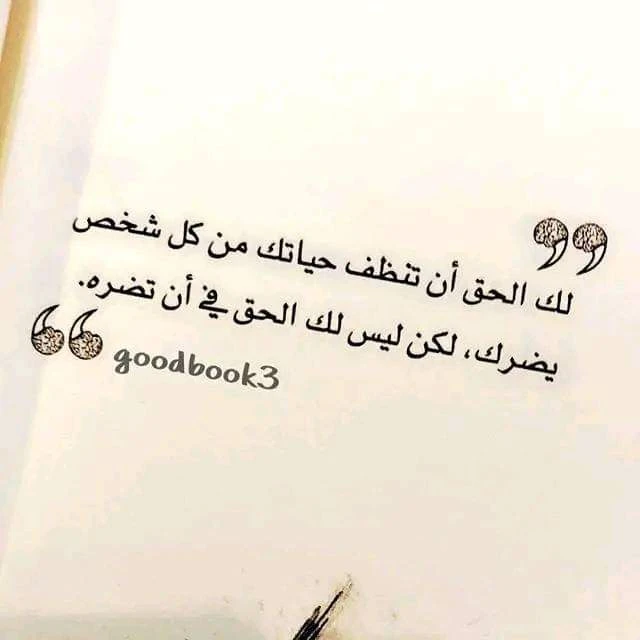 لك الحق أن تنظف حياتك من كل شخص
يضرك، لكن ليس لك الحق في أن تضره.
goodbook3